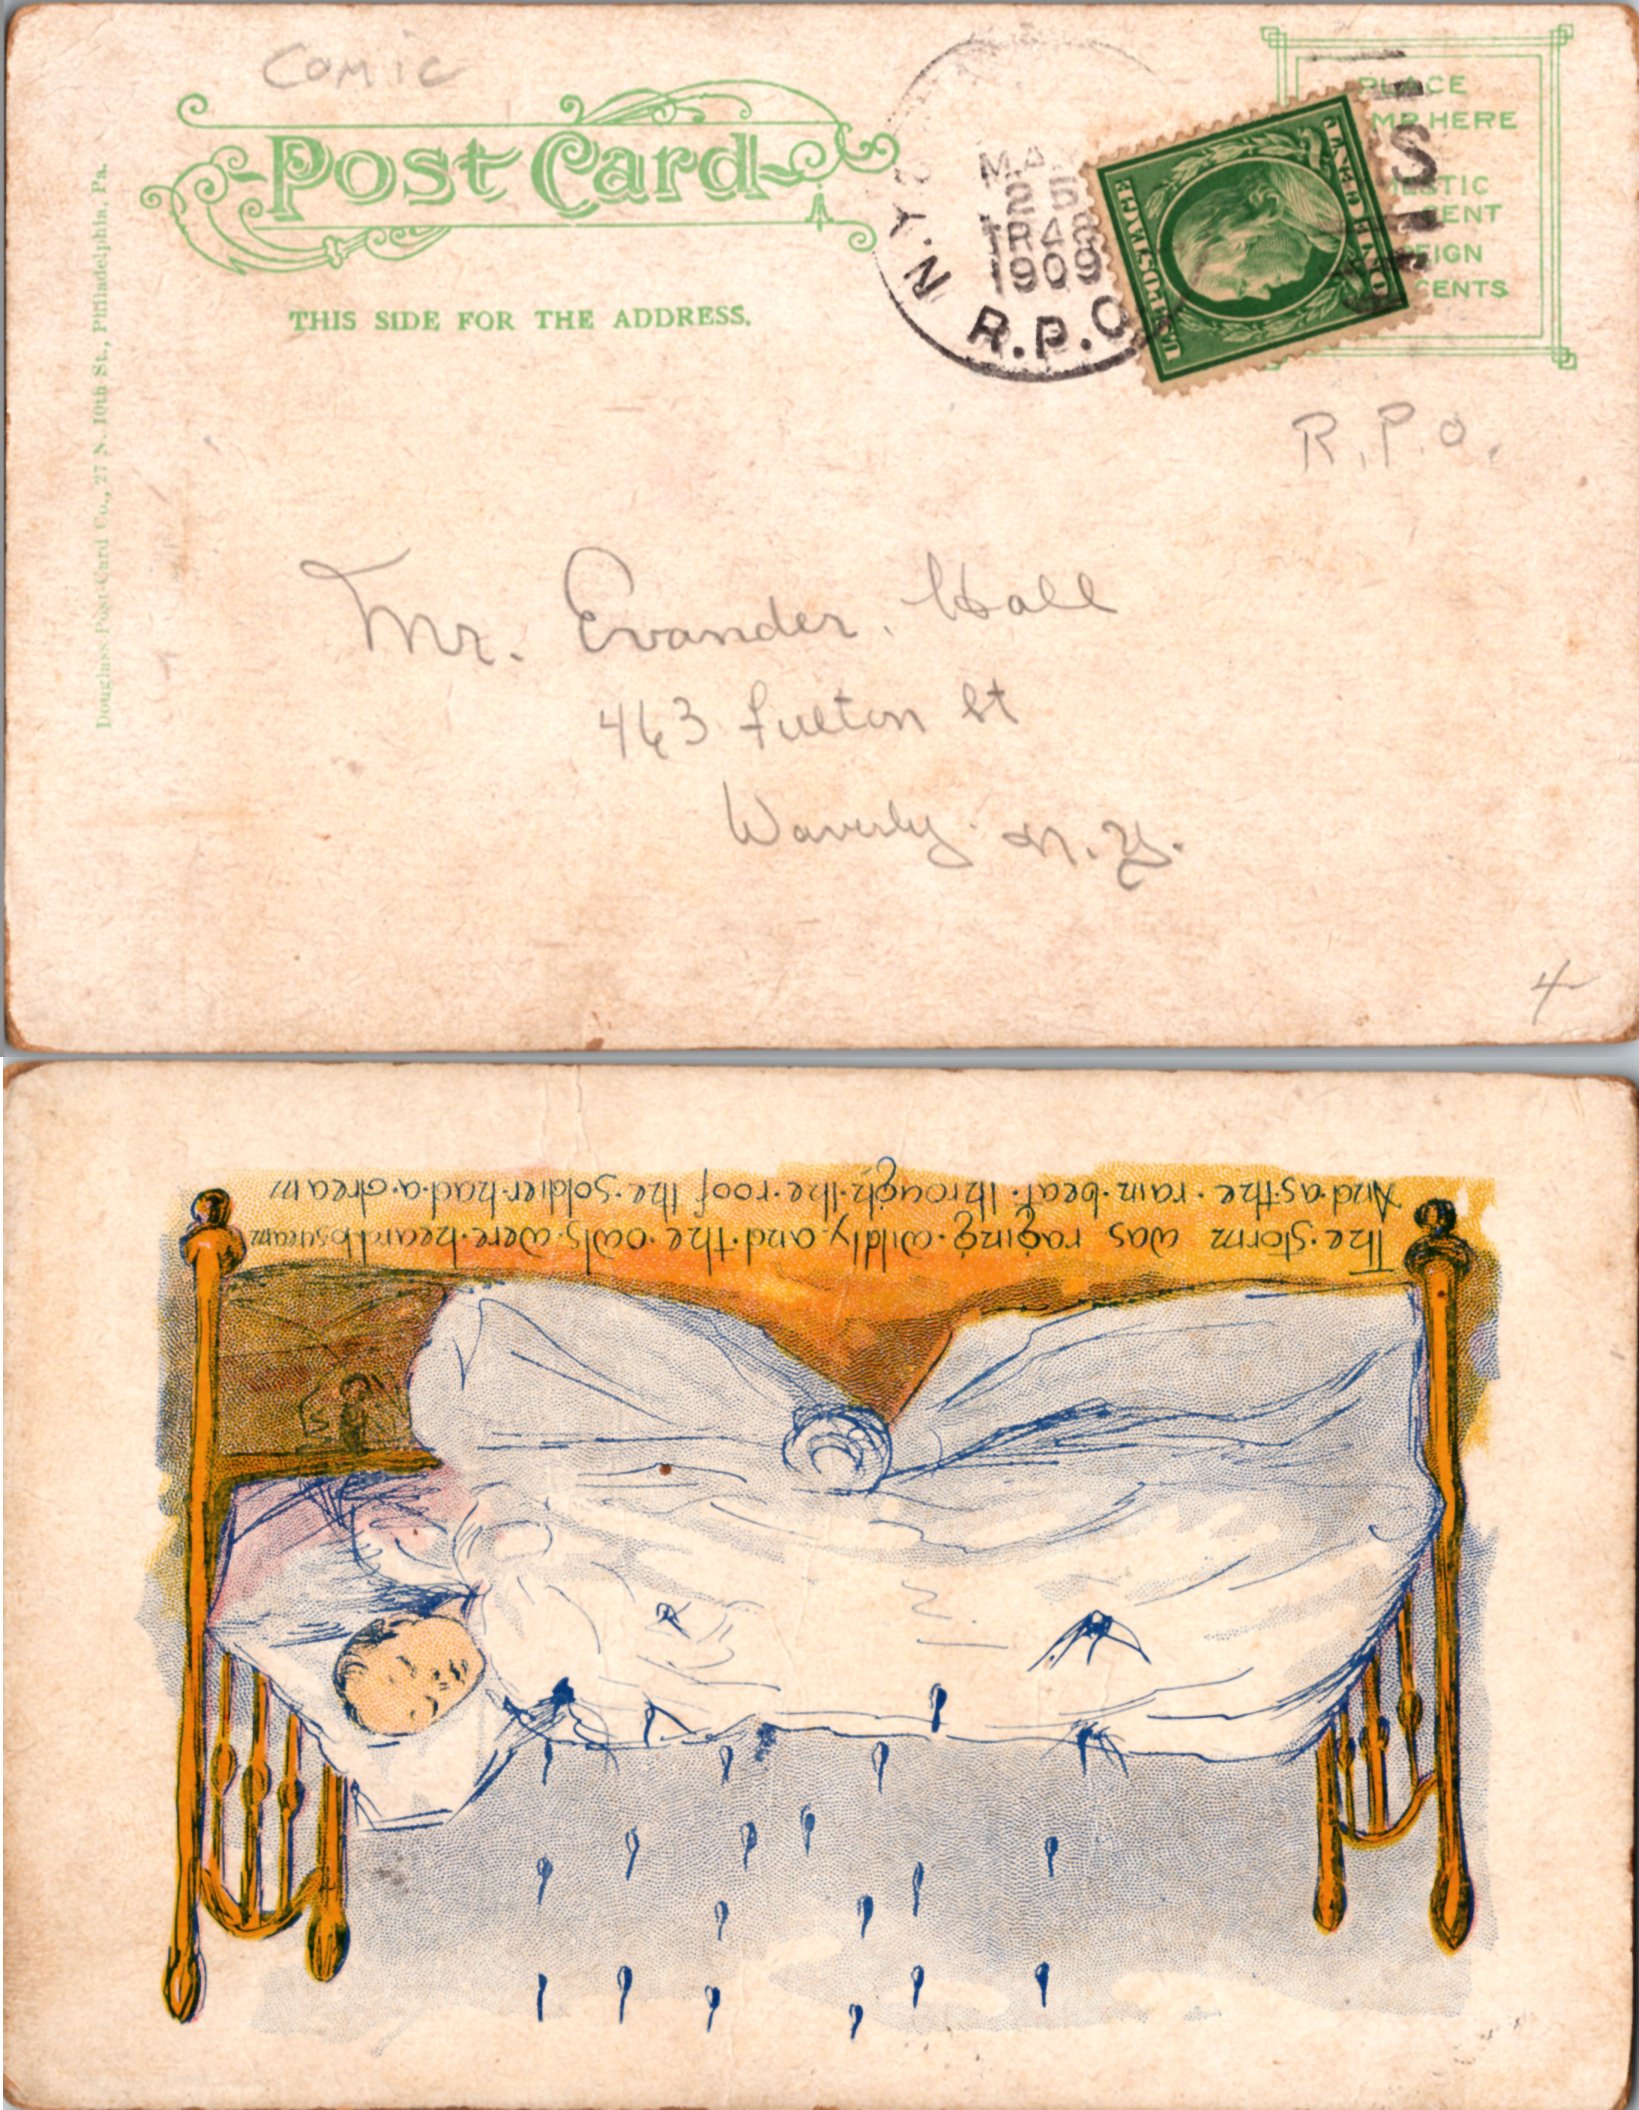 Comic
Post Card
THIS SIDE FOR THE ADDRESS.
Douglass Post Card Co., 27 N. 10th St., Philadelphia, Pa.
N.Y.
MAR
TR 4
1909
R.P.O.
S
U.S. POSTAGE
ONE CENT
PLACE
HERE
CENT
CENTS
R.P.O.
Mr. Evander Hall
463 Fulton St
Waverly N.Y.
4
The storm was raging wildly and the owls were heard to scream
And as the rain beat through the roof the soldier had a dream